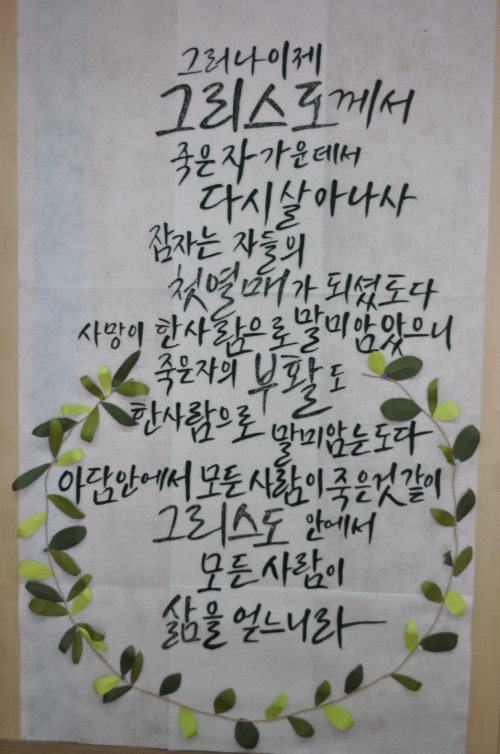 그러나이제
그리스도께서
죽은 자 가운데서
다시살아나사
잠자는 자들의
첫열매가 되셨도다
사망이 한사람으로 말미암았으니
죽은자의 부활도
한사람으로 말미암는도다
아담안에서 모든 사람이 죽은것 같이
그리스도 안에서
모든 사람이
삶을 얻느니라